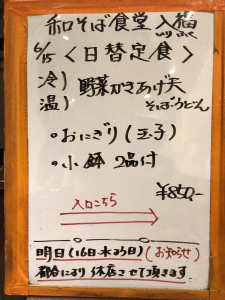 和そば食堂 入猫
6/15 <日替定食>
冷) 野菜かきあげ天
温) そばうどん
・おにぎり(玉子)
・小鉢 2品付
¥850,-
入口こちら
明日(16日・木曜日)(お知らせ)
都合により休店させて頂きます